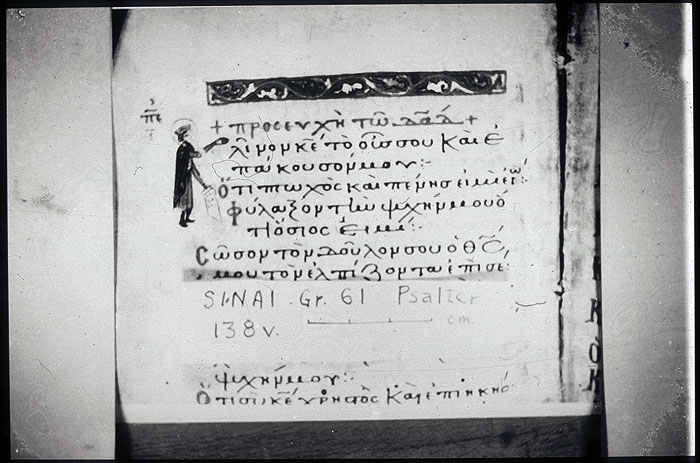 πε
+ προσευχὴ τῶ δᾱδ +
λῖνον κ̅ε τὸ οὖς σου καὶ ἐ
πάκουσόν μου:
Ὅτι πτωχὸς καὶ πένης εἰμὶ ἐγώ:
φύλαξον τὴν ψυχήν μου ὅ
τι ὅσιός εἰμι:
Σῶσον τὸν δοῦλόν σου ὁ θ̅ς
μου τὸν ἐλπίζοντα ἐπὶ σέ:
SINAI Gr. 61 Psalter
138v.
cm.
ψυχήν μου:
Ὅτι σὺ κ̅ε χρηστὸς καὶ ἐπιεικής